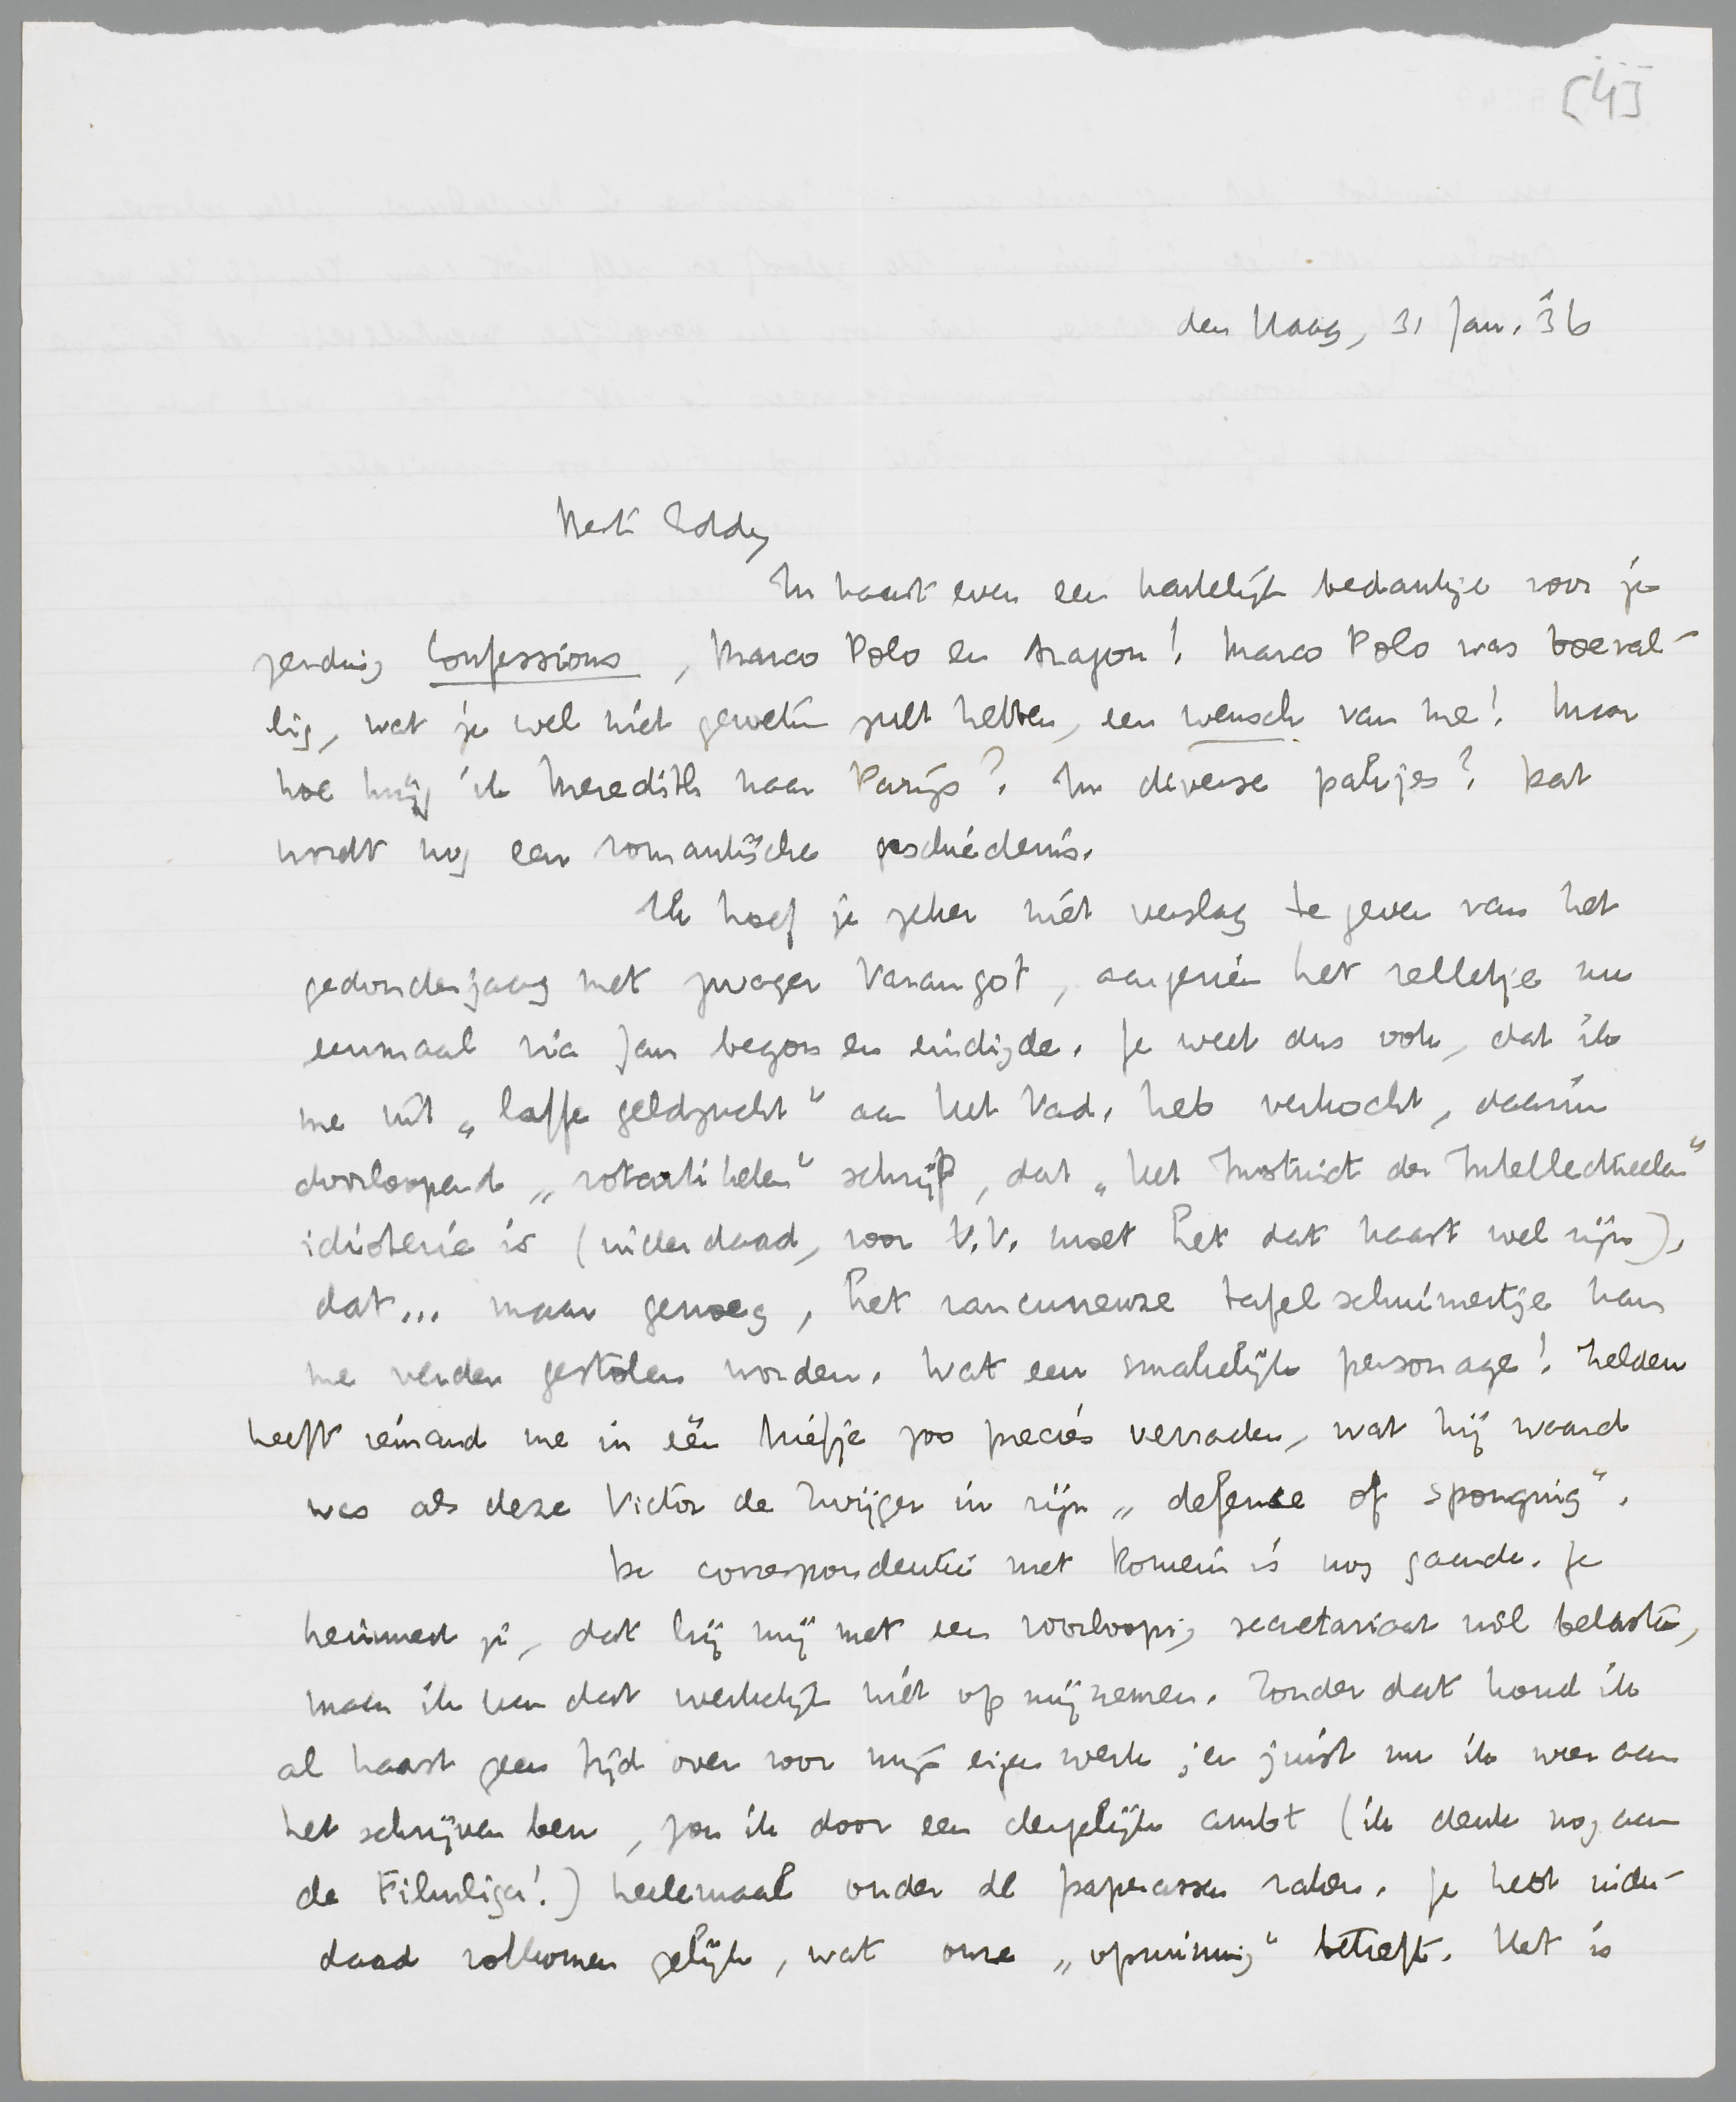 [4]
den Haag, 31 Jan. '36
Beste Eddy
In haast even een hartelijk bedankje voor je
zending Confessions, Marco Polo en Aragon! Marco Polo was toeval-
lig, wat je wel niet geweten zult hebben, een wensch van me! Maar
hoe krijg ik Meredith naar Parijs? In diverse pakjes? Dat
wordt nog een romantische geschiedenis.
Ik hoef je zeker niet verslag te geven van het
gedonderjaag met zwager Varangot, aangezien het relletje nu
eenmaal via Jan begon en eindigde. Je weet dus ook, dat ik
me uit „laffe geldzucht" aan het Vad. heb verkocht, daarin
doorloopend „rotartikelen" schrijf, dat „het Instinct der Intellectueelen"
idioterie is (inderdaad, voor V.V. moet het dat haast wel zijn),
dat... maar genoeg, het rancuneuze tafelschuimertje kan
me verder gestolen worden. Wat een smakelijk personage! Zelden
heeft iemand me in één briefje zoo precies verraden, wat hij waard
was als deze Victor de Zwijger in zijn „defense of sponging".
De correspondentie met Romein is nog gaande. Je
herinnert je, dat hij mij met een voorloopig secretariaat wil belasten,
maar ik kan dat werkelijk niet op mij nemen. Zonder dat houd ik
al haast geen tijd over voor mijn eigen werk; en juist nu ik weer aan
het schrijven ben, zou ik door een dergelijk ambt (ik denk nog aan
de Filmliga!) heelemaal onder de paperassen raken. Je hebt inder-
daad volkomen gelijk, wat onze „opwinding" betreft. Het is